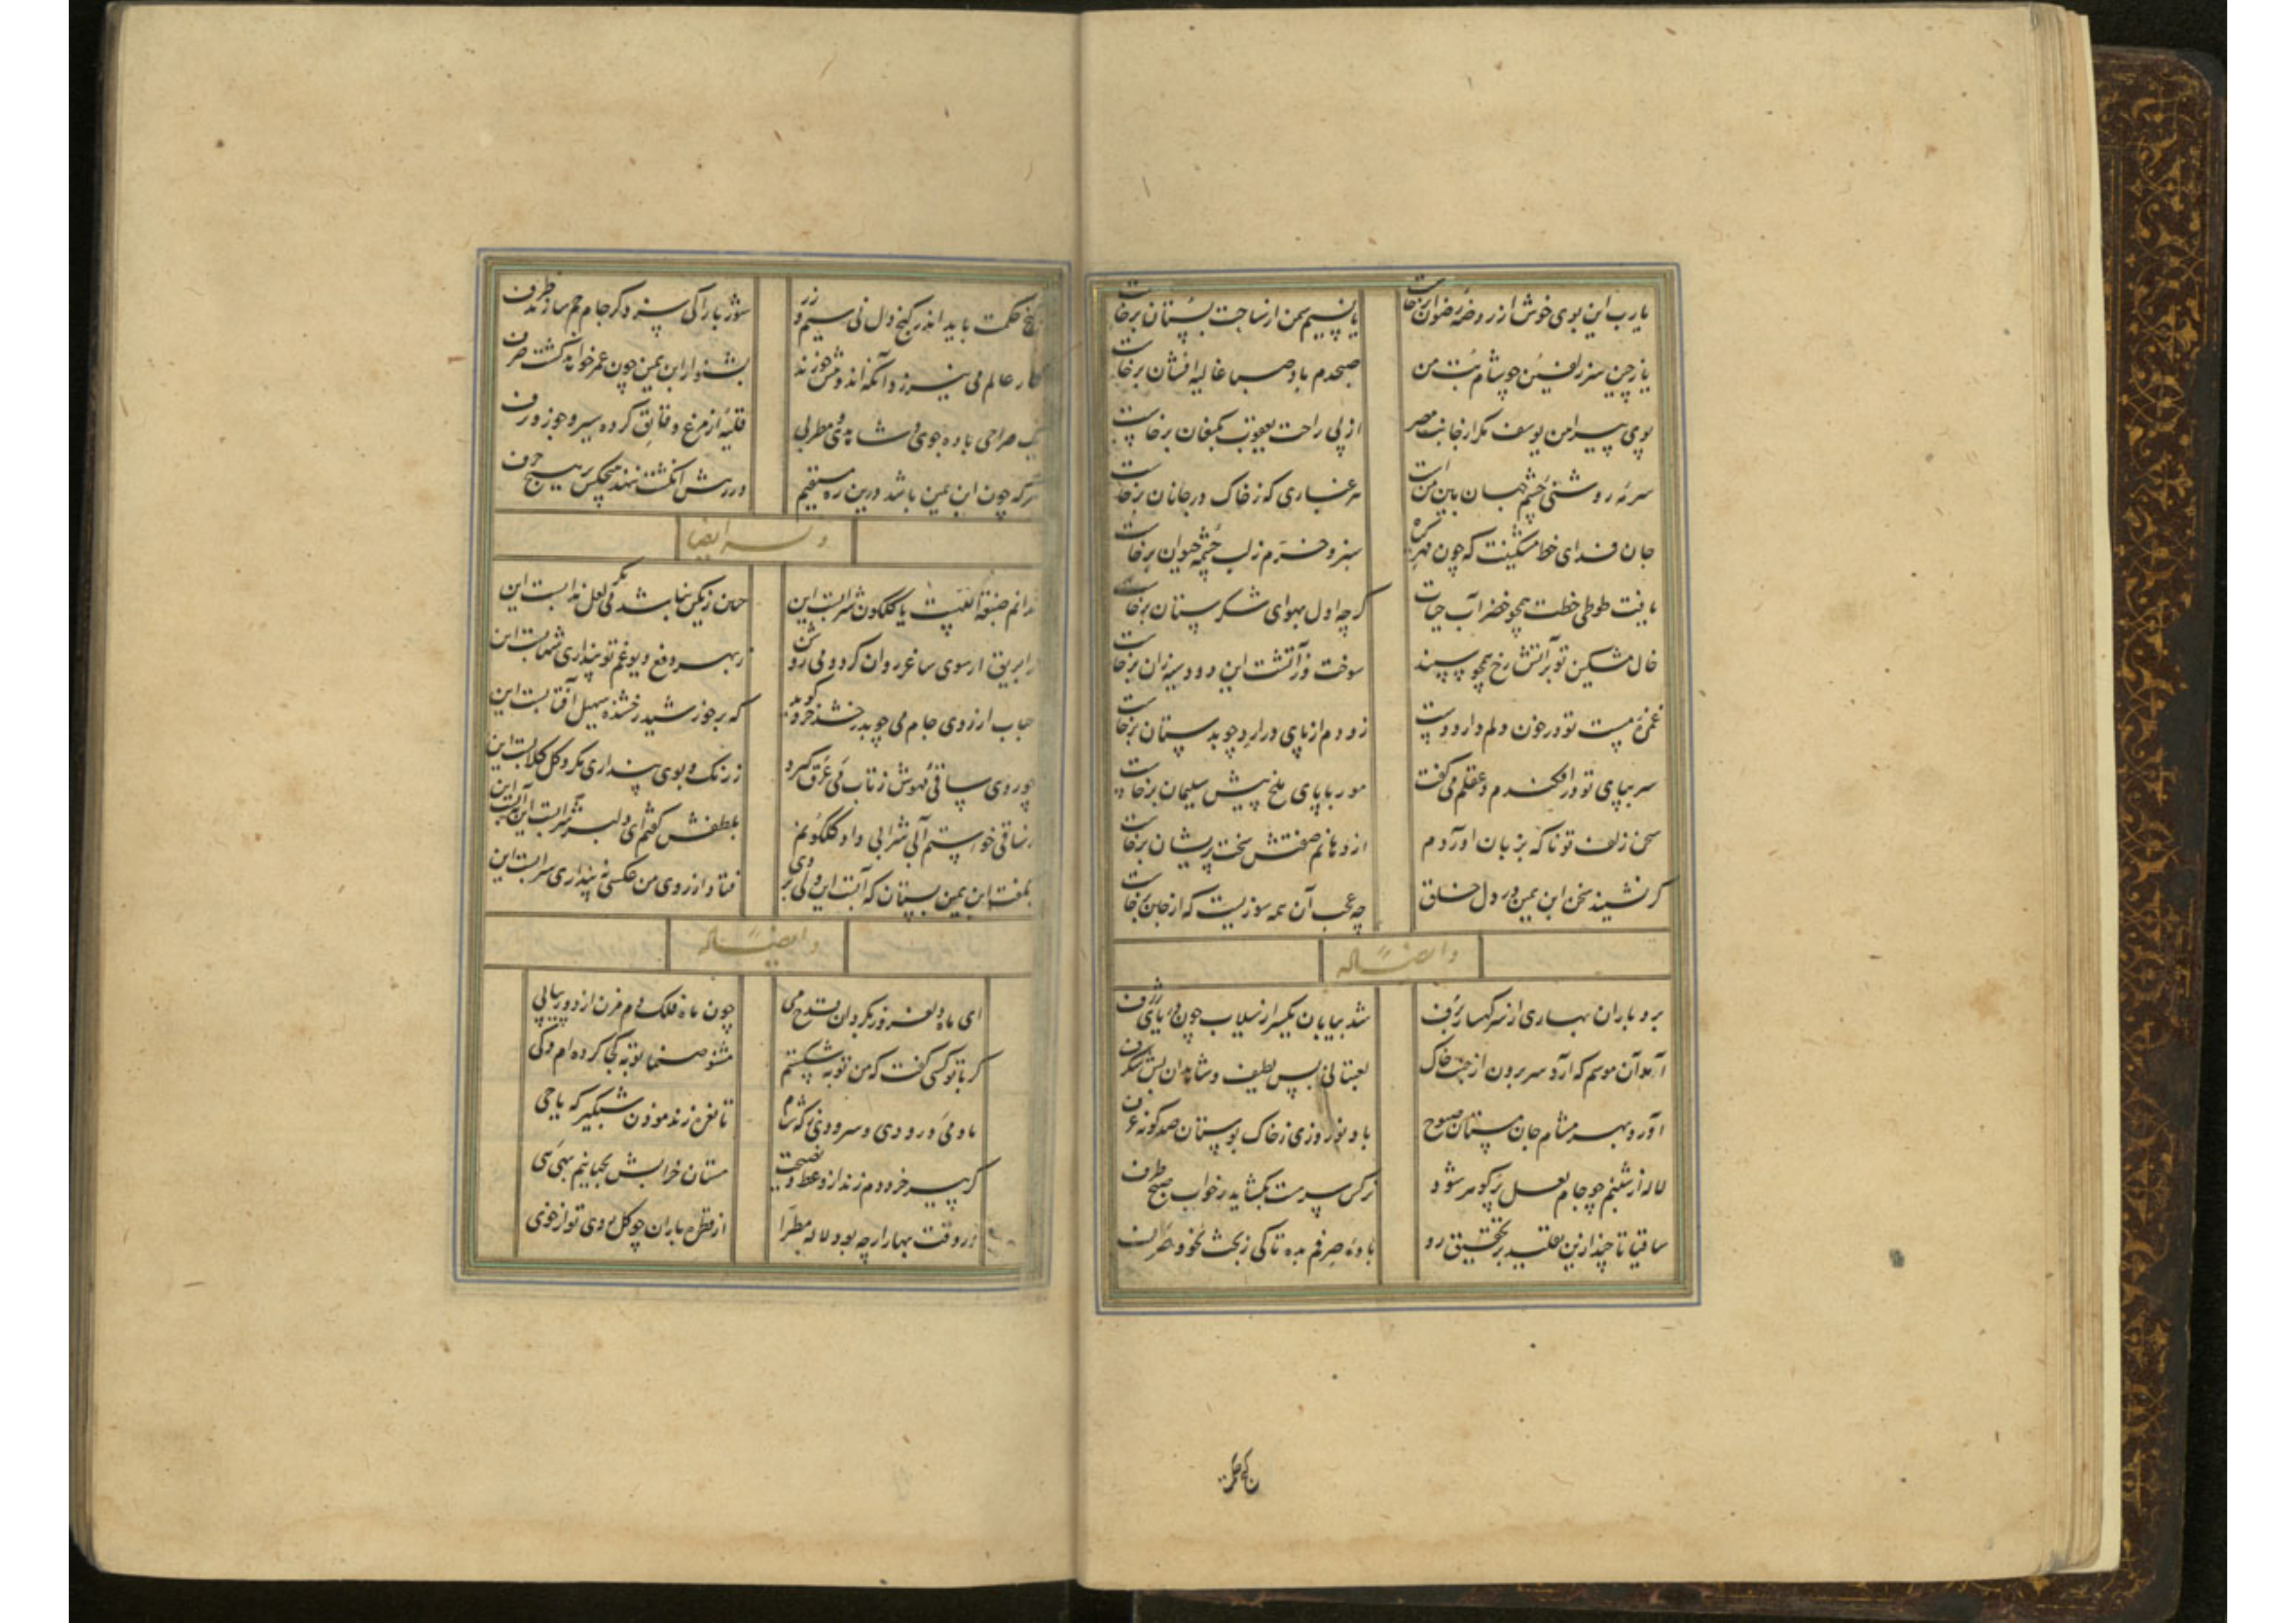 یارب این بوی خوش از روضهٔ رضوان برخاست
یا نسیم سمن از ساحت بستان برخاست
یا ز چین سر زلفین چو شام بت من
صبحدم باد صبا غالیه افشان برخاست
بوی پیراهن یوسف مگر از جانب مصر
از پی راحت یعقوب بکنعان برخاست
سرمهٔ روشنی چشم جهان بین منست
هر غباری که ز خاک در جانان برخاست
جان فدای خط مشکینت که چون مهر
سبز و خرم ز لب چشمه حیوان برخاست
یافت طوطی خطت همچو خضر آب حیات
گرچه اول بهوای شکرستان برخاست
خال مشکین تو بر آتش رخ همچو سپند
سوخت وز آتشت این دود بدینسان برخاست
غمزهٔ مست تو در خون دلم دارد دست
زود از پای درآرد چو بدستان برخاست
سر بپای تو درافکندم و عقلم می گفت
مور با پای ملخ پیش سلیمان برخاست
سخن زلف تو تا که بزبان آوردم
از دهانم صفتش سخت پریشان برخاست
گر نشیند سخن ابن یمین در دل خلق
چه عجب آن همه سوزیست که از جان برخاست
وایضاً له
برد باران بهاری از سر کهسار برف
شد بیابان یکسر از سیلاب چون دریای ژرف
آمد آن موسم که آرد سر برون از جیب خاک
لعبتانی بس لطیف و شاهدان بس شگرف
آورد بهر مشام جان مستان صبوح
باد نوروزی ز خاک بوستان صدگونه عرف
لاله از شبنم چو جام لعل پر گوهر شود
نرگس سرمست بگشاید ز خواب صبح طرف
ساقیا تا چند ازین تقلید بر تحقیق رو
بادهٔ صرفم بده تا کی ز بحث نحو و صرف
گنج حکمت باید اندر کنج دل نی سیم و زر
شور با را کی سزد گر جام جم سازند ظرف
کار عالم می نیرزد آنکه اندوهش خورند
بشنو از ابن یمین چون عمر خواهد گشت صرف
یک صراحی باده جوی و شاهدی و مطربی
قلیهٔ از مرغ و قایق کرده سیر و جوز ورف
هرکه چون ابن یمین باشد درین ره مستقیم
در رهش انگشت ننهد هیچکس بر هیچ حرف
وله ایضا
ندانم صبغة اللهست یا گلگون شرابست این
چنان رنگین نباشد می مگر لعل مذابست این
در ابریق ار سوی ساغر روان گردد می روشن
ز بهر دفع دیو غم تو پنداری شهابست این
حباب ار روی جام می چو بدرخشد خرد گوید
که بر خورشید رخشنده سهیل آفتابست این
چو روی ساقی مهوش ز تاب می عرق گیرد
ز رنگ و بوی پنداری مگر ورد گلابست این
ز ساقی خواستم آبی شرابی داد گلگونم
بلطفش گفتم ای دلبر شرابست این نه آبست این
بگفت ابن یمین بستان که آبست این ولی بر وی
فتاد از روی من عکسی نپنداری سرابست این
وایضاً له
ای ماه دلفروز بگردان قدح می
چون ماه فلک دم مزن از دور پیاپی
گر با تو کسی گفت که من توبه شکستم
مشنو صنما توبه کجا کرده ام و کی
ما و می و رودی و سرودی که شام
تا نعره زند موذن شبگیر که یا حی
گر پیر خرد دم زند از وعظ و نصیحت
مستان خرابش بجبانیم بهی هی
در وقت بهار ار چه بود لاله مطرا
از قطره باران چو گل روی تو از خوی